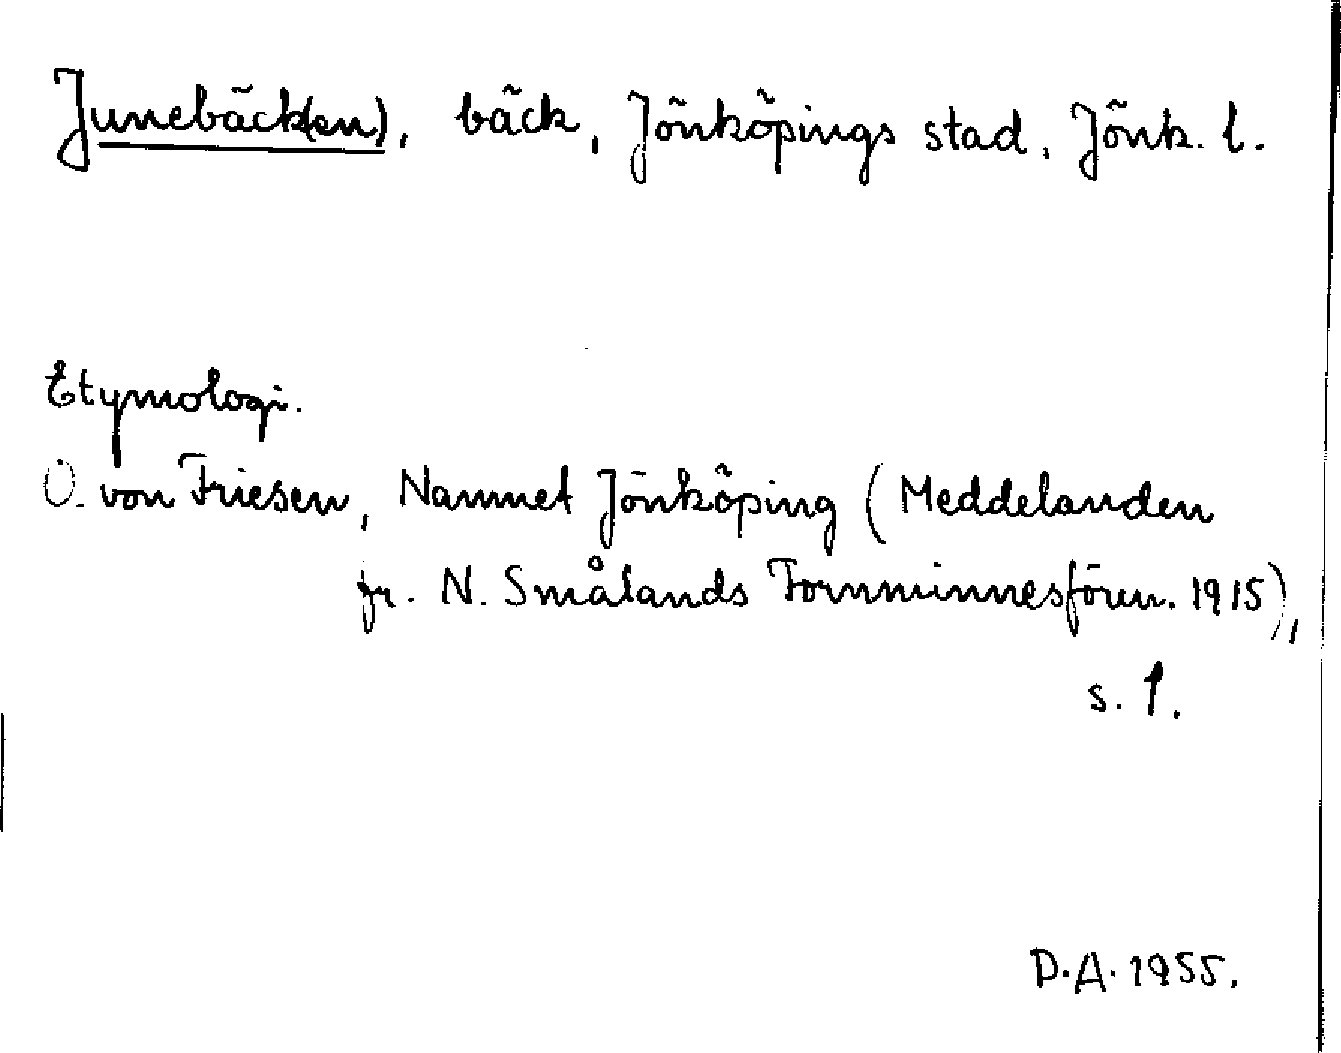 Junebäck(en), bäck, Jönköpings stad, Jönk. l.
Etymologi.
O. von Friesen, Namnet Jönköping (Meddelanden
fr. N. Smålands Fornminnesfören. 1915),
s. 1.
D.A. 1955.